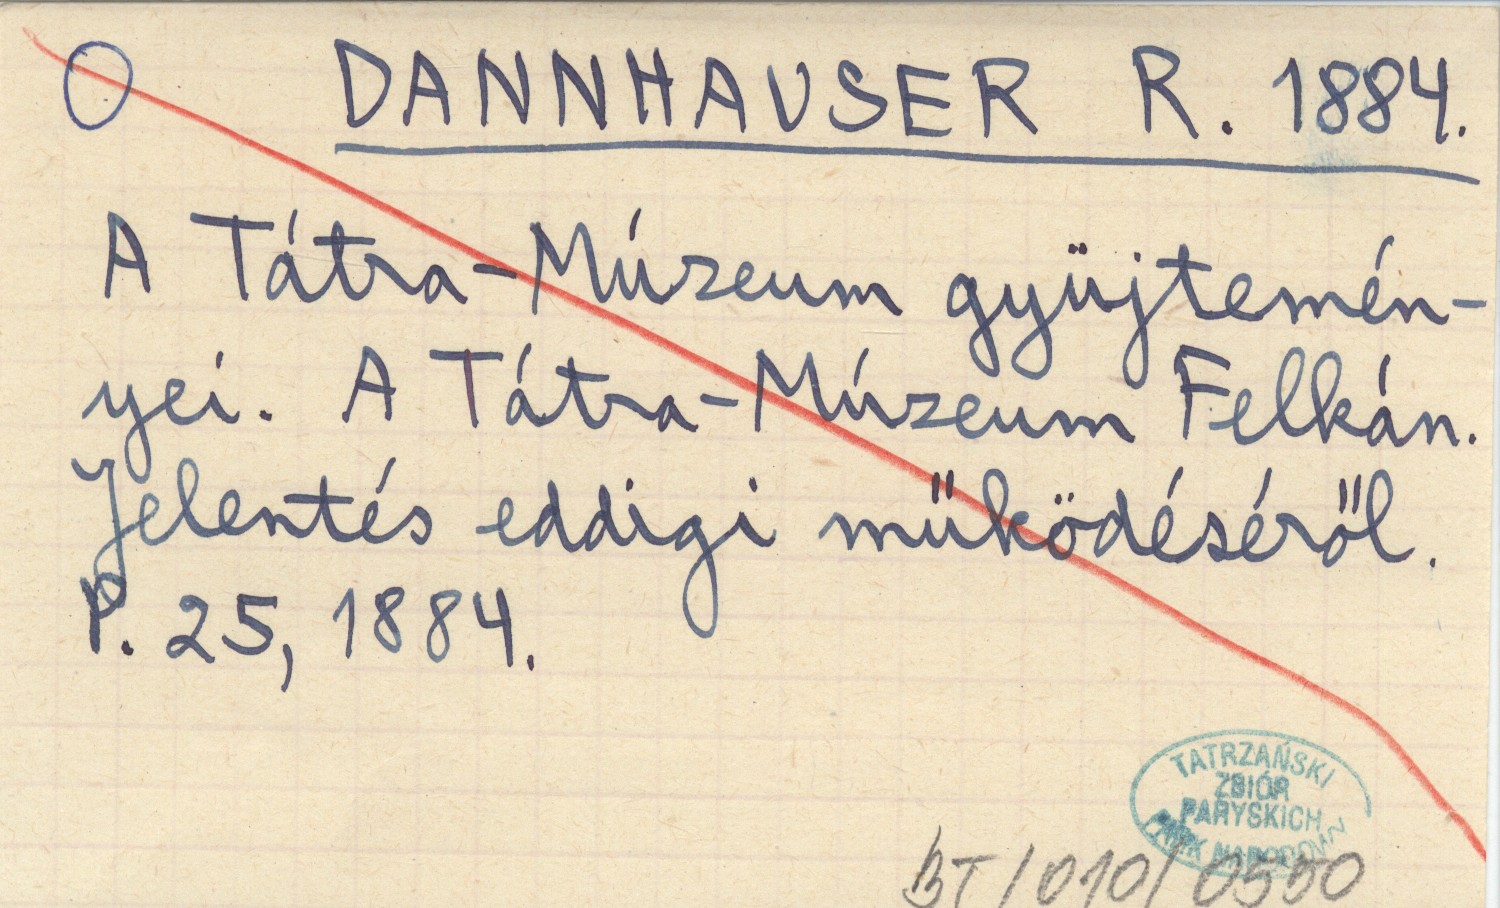 O DANNHAUSER R. 1884.
A Tátra-Múzeum gyüjtemén-
yei. A Tátra-Múzeum Felkán.
Jelentés eddigi működéséről.
P. 25, 1884.
TATRZAŃSKI
ZBIÓR
PARYSKICH
PARK NARODOWY
BT/010/0550